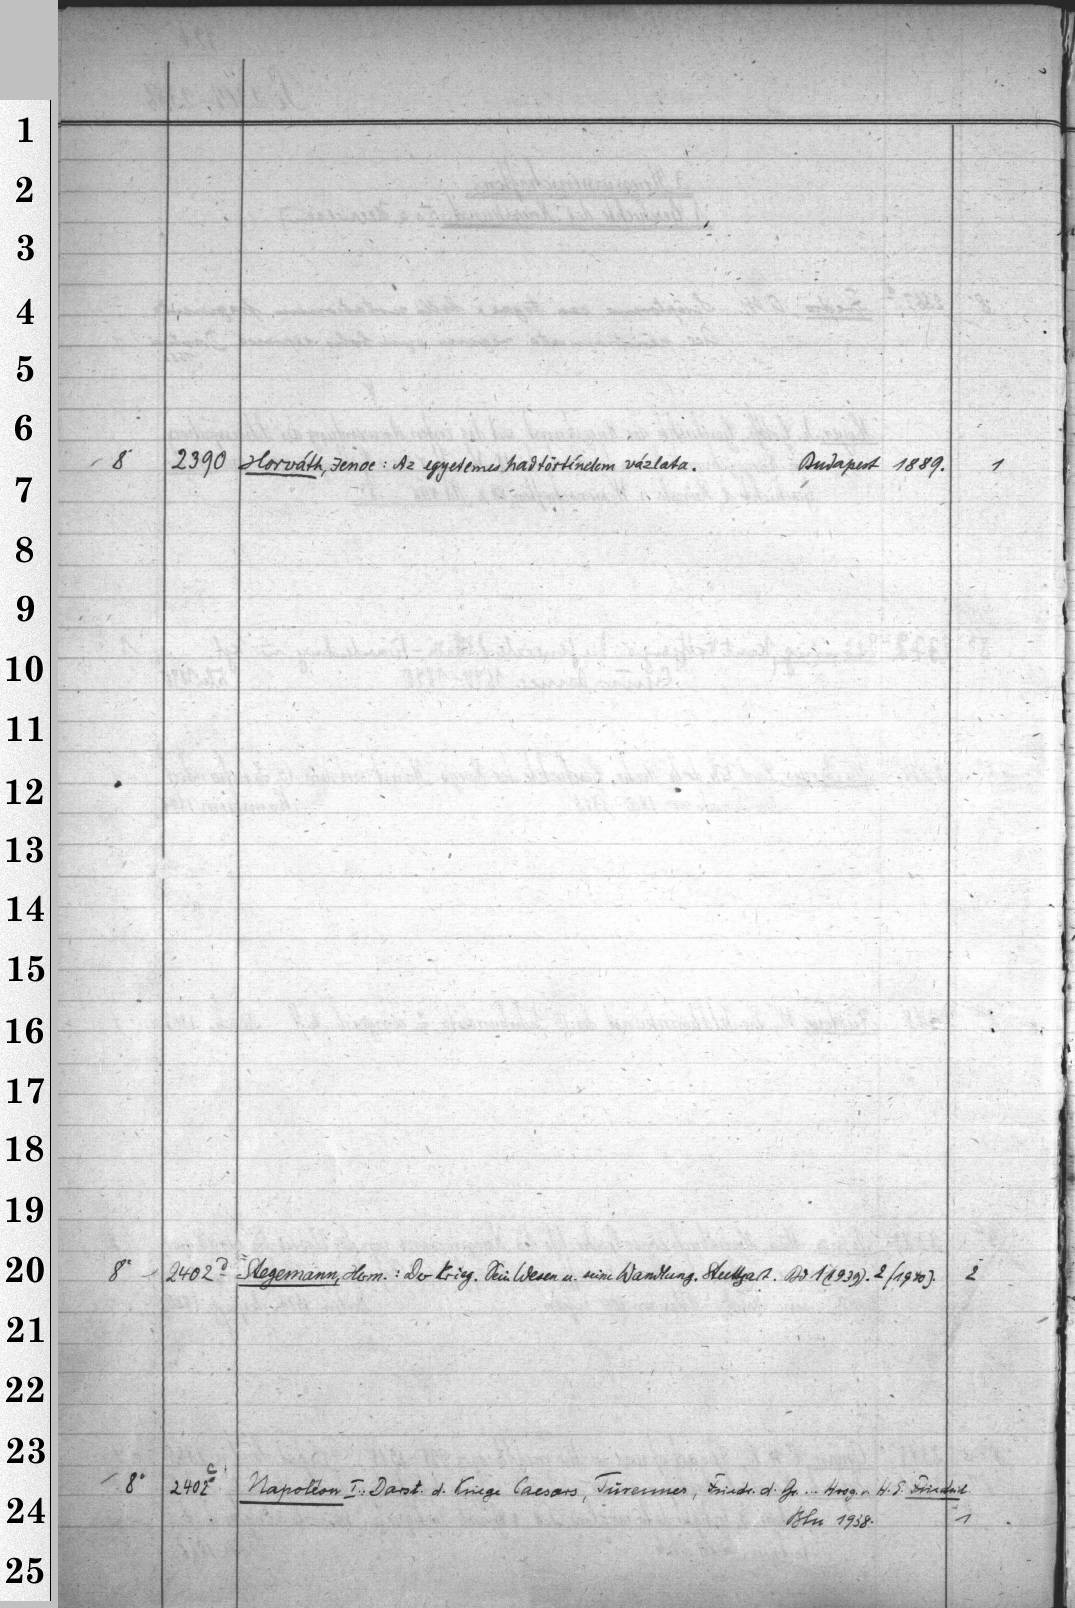 1
2
3
4
5
6
8 2390 Horváth, Jenoe : Az egyetemes hadtörténelem vázlata. Budapest 1889. 1
7
8
9
10
11
12
13
14
15
16
17
18
19
20
8° 2402 Stegemann, Herm. : Der Krieg. Sein Wesen u. seine Wandlung. Stuttgart. Bd 1 (1939). 2 (1940). 2
21
22
23
8° 2402 c Napoléon I.: Darst. d. Kriege Caesars, Turennes, Friedr. d. Gr. ... Hrsg. v. H. E. Friedrich
24
Bln 1938. 1
25